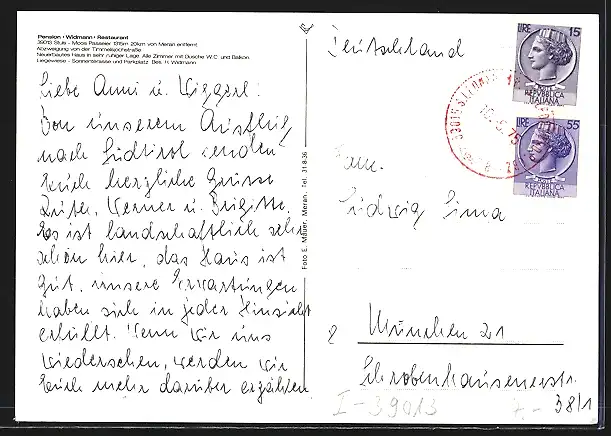 Pension · Widmann · Restaurant
39013 Stuls - Moos Passeier 1315m 20km von Meran entfernt
Abzweigung von der Timmelsjochstraße.
Neuerbautes Haus in sehr ruhiger Lage. Alle Zimmer mit Dusche W.C. und Balkon.
Liegewiese - Sonnenterrasse und Parkplatz. Bes. H. Widmann
Liebe Anni u. Wiggerl.
Von unserem Ausflug
nach Südtirol senden
Euch herzliche Grüsse
Werner u. Brigitte.
Es ist landschaftlich sehr
schön hier, das Haus ist
gut, unsere Erwartungen
haben sich in jeder Hinsicht
erfüllt. Wenn wir uns
wiedersehen, werden wir
Euch mehr darüber erzählen
Foto E. Mauer, Meran, Tel. 31 8 36
Deutschland
LIRE 15
REPVBBLICA
ITALIANA
LIRE 55
REPVBBLICA
ITALIANA
39013
Fam.
Ludwig Sima
8 München 21
Schrobenhausenerstr.
38/1
I-39013
7.-